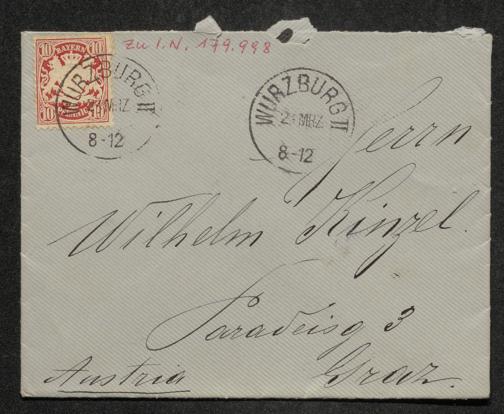 Zu I.N. 179.998
10 BAYERN 10
10 10
WÜRZBURG II
MRZ
8-12
WÜRZBURG II
MRZ
8-12
Herrn
Wilhelm Kinzel.
Paradeisg 3
Austria Graz.